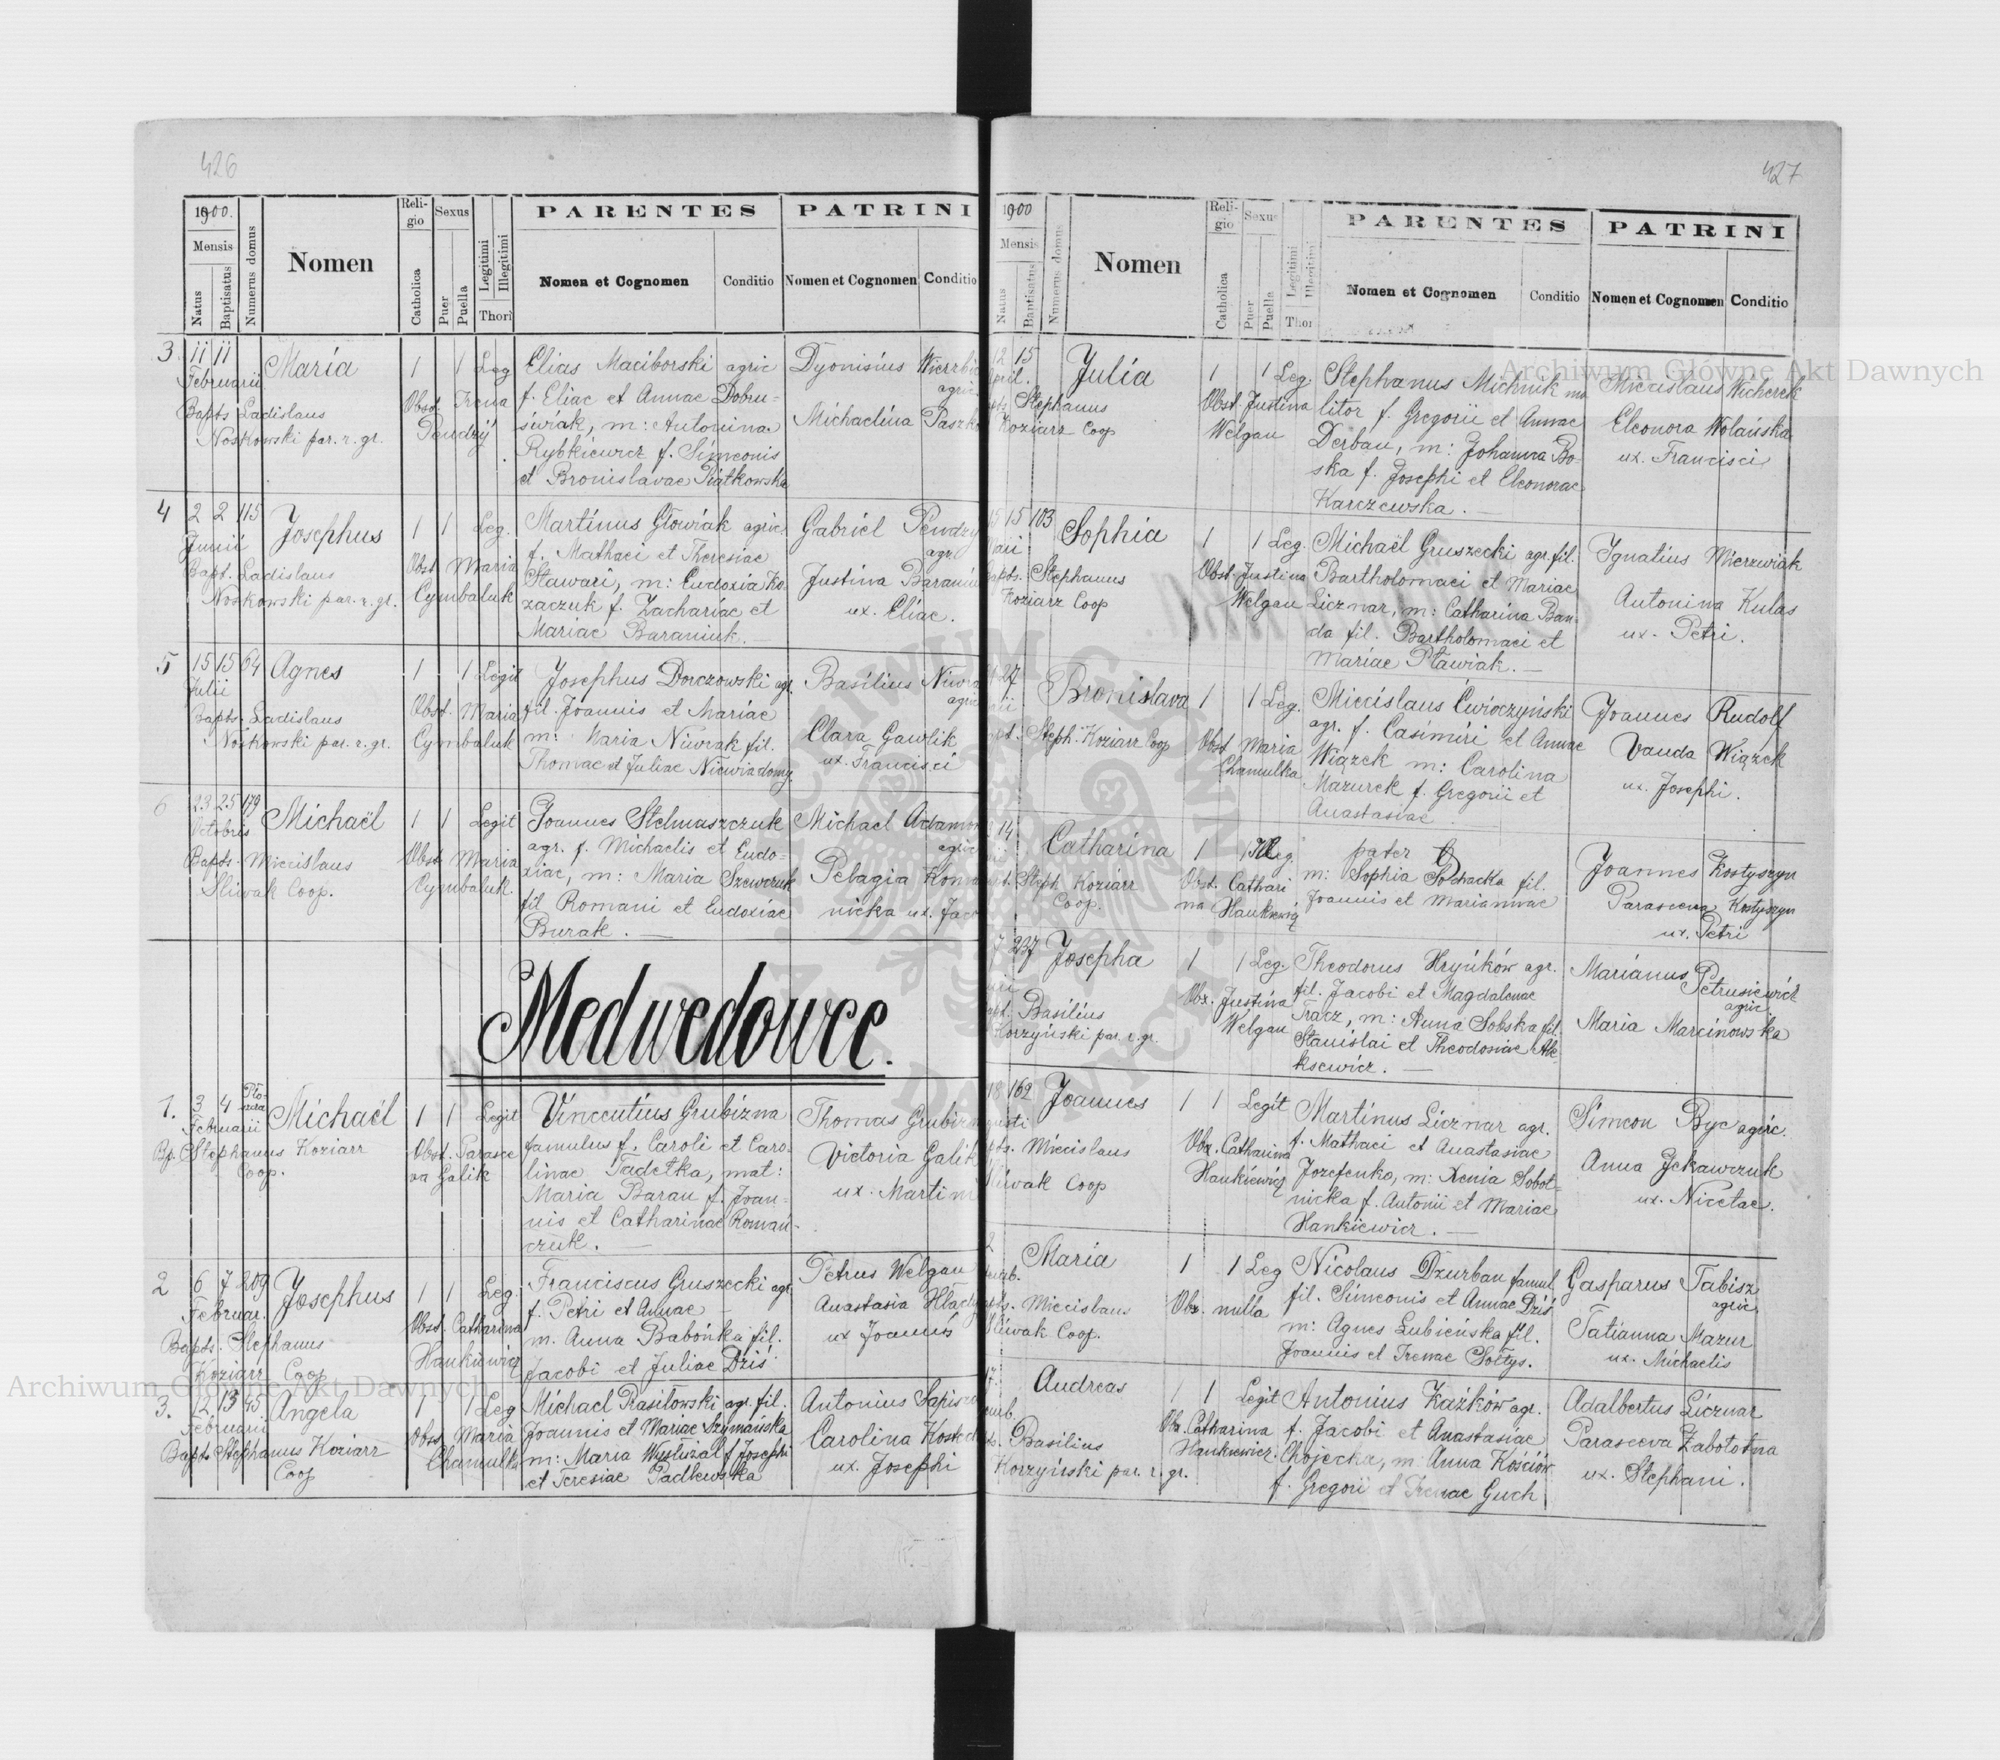 426
1900.
Mensis
Natus
Baptisatus
Numerus domus
Nomen
Religio
Catholica
Sexus
Puer
Puella
Legitimi
Illegitimi
Thori
PARENTES
Nomen et Cognomen
Conditio
PATRINI
Nomen et Cognomen
Conditio
3 11 11 Maria 1 1 Leg
Februarii
Bapts Ladislaus
Noskowski par. r. gr.
Obst. Irena
Pendzij
Elias Maciborski agric
f. Eliae et Annae Dobru-
siwiak, m: Antonina
Rybkiewicz f. Simeonis
et Bronislavae Piątkowska
Dyonisius
agric
Michaelina
4 2 2 115 Josephus 1 1 Leg.
Junii
Bapt. Ladislaus
Noskowski par. r. gr.
Obst Maria
Cymbaluk
Martinus Głowiak agric
f. Mathaei et Theresiae
Stawari, m: Eudoxia Ko-
zaczuk f. Zachariae et
Mariae Baraniuk.
Gabriel
agr.
Justina
ux. Eliae.
5 15 15 64 Agnes 1 1 Legit
Julii
Bapts. Ladislaus
Noskowski par. r. gr.
Obst. Maria
Cymbaluk
Josephus Dorczowski agr.
fil. Joannis et Mariae
m: Maria Niwrak fil.
Thomae et Juliae Niewiadomy.
Basilius
agric
Clara Gawlik
ux. Francisci
6 23 25 179 Michaël 1 1 Legit
Octobris
Bapts. Miecislaus
Sliwak Coop.
Obst Maria
Cymbaluk.
Joannes Stelmaszczuk
agr. f. Michaelis et Eudo-
xiae, m: Maria Szewczuk
fil Romani et Eudoxiae
Burak.
Michael
agric
Pelagia
nicka ux.
Medwedowce.
1. 3 4 Michaël 1 1 Legit
Februarii
Bp. Stephanus Koziarz
Coop.
Obst. Parasce
va Galik
Vincentius Grubizna
famulus f. Caroli et Caro-
linae Tadetka, mat:
Maria Baran f. Joan-
nis et Catharinae Romań-
czuk.
Thomas
Victoria Galik
ux. Martini
2 6 7 209 Josephus 1 1 Leg.
Februar.
Bapts. Stephanus
Koziarz Coop
Obst. Catharina
Hankiewicz
Franciscus Gruszecki agr
f. Petri et Annae
m. Anna Babońka fil.
Jacobi et Juliae Dziś
Petrus Welgan
Anastasia
ux Joannis
3. 12 13 45 Angela 1 1 Leg
Februarii
Bapts Stephanus Koziarz
Coop
Obst Maria
Chamulka
Michael Rasiłowski agr. fil.
Joannis et Mariae Szymańska
m: Maria Wysłużał f Josephi
et Teresiae Padlewska
Antonius
Carolina
ux. Josephi
427
1900
Mensis
Natus
Baptisatus
Numerus domus
Nomen
Religio
Catholica
Sexus
Puer
Puella
Legitimi
Illegitimi
Thor
PARENTES
Nomen et Cognomen
Conditio
PATRINI
Nomen et Cognomen
Conditio
12 15 Julia 1 1 Leg.
Stephanus
Koziarz Coop
Obst. Justina
Welgan
Stephanus Michnik mo
litor f. Gregorii et Annae
Derbau, m: Johanna Bo-
ska f. Josephi et Eleonorae
Karczewska.
Miecislaus Wicherek
Eleonora Wolańska
ux. Francisci
15 15 103 Sophia 1 1 Leg.
Stephanus
Koziarz Coop
Obst. Justina
Welgan
Michaël Gruszecki agr. fil.
Bartholomaei et Mariae
Licznar, m: Catharina Ban-
da fil. Bartholomaei et
Mariae Pławiak.
Ignatius Mierzwiak
Antonina Kulas
ux. Petri.
27 Bronislava 1 1 Leg.
Steph. Koziarz Coop
Obst Maria
Chamulka
Miecislaus Ćwioczyński
agr. f. Casimiri et Annae
Wiązek m: Carolina
Mazurek f. Gregorii et
Anastasiae
Joannes Rudolf
Vanda Wiązek
ux. Josephi.
14 Catharina 1 1 Illeg.
Steph Koziarz
Coop.
Obst. Cathari
na Hankiewicz
pater
m: Sophia Sochacka fil.
Joannis et Mariannae
Joannes Kostyszyn
Parasceva Kostyszyn
ux. Petri
7 237 Josepha 1 1 Leg.
Basilius
Korzyński par. r. gr.
Obs. Justina
Welgan
Theodorus Hryńków agr.
fil. Jacobi et Magdalenae
Tracz, m: Anna Sobska fil.
Stanislai et Theodosiae Ale
ksewicz.
Marianus Petrusiewicz
agric
Maria Marcinowska
18 162 Joannes 1 1 Legit
Miecislaus
Sliwak Coop
Obs. Catharina
Hankiewicz
Martinus Licznar agr.
f. Mathaei et Anastasiae
Jozefenko, m: Xenia Sobot-
nicka f. Antonii et Mariae
Hankiewicz.
Simeon Byc agric.
Anna Jekawczuk
ux. Nicetae.
Maria 1 1 Leg
Miecislaus
Sliwak Coop.
Obs. nulla
Nicolaus Dzurban famul
fil. Simeonis et Annae Dziś
m: Agnes Lubieńska fil.
Joannis et Irenae Sołtys.
Gasparus Tabisz
agric
Tatianna Mazur
ux. Michaelis
17. Andreas 1 1 Legit
Basilius
Korzyński par. r. gr.
Obs. Catharina
Hankiewicz.
Antonius Kaźków agr.
f. Jacobi et Anastasiae
Chojecka, m: Anna Kościów
f. Gregorii et Irenae Guch
Adalbertus Licznar
Parasceva Zabłotna
ux. Stephani.
Archiwum Główne Akt Dawnych
Archiwum Główne Akt Dawnych